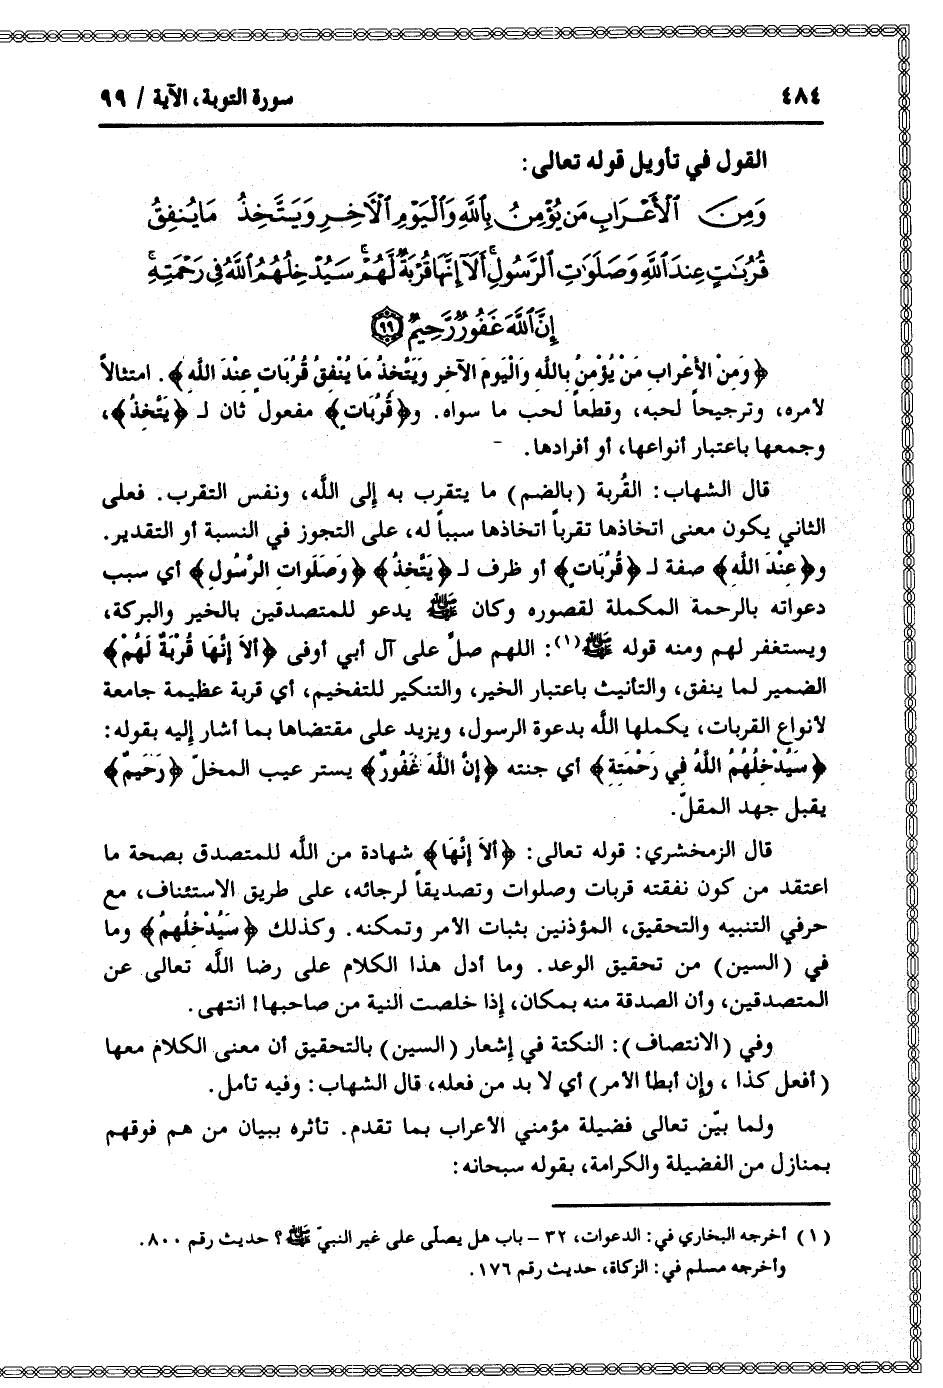 ٤٨٤ سورة التوبة، الآية / ٩٩
القول في تأويل قوله تعالى:
وَمِنَ ٱلْأَعْرَابِ مَن يُؤْمِنُ بِٱللَّهِ وَٱلْيَوْمِ ٱلْآخِرِ وَيَتَّخِذُ مَا يُنفِقُ
قُرُبَٰتٍ عِندَ ٱللَّهِ وَصَلَوَٰتِ ٱلرَّسُولِ ۚ أَلَآ إِنَّهَا قُرْبَةٌ لَّهُمْ ۚ سَيُدْخِلُهُمُ ٱللَّهُ فِى رَحْمَتِهِۦٓ ۗ
إِنَّ ٱللَّهَ غَفُورٌ رَّحِيمٌ ۝٩٩
﴿وَمِنْ الأَعْرَاب مَنْ يُؤْمِنُ بِاللَّه وَالْيَوْمِ الآخر وَيَتَّخذُ مَا يُنْفِقُ قُرُبَات عندَ اللَّه﴾. امتثالاً
لأمره، وترجيحاً لحبه، وقطعاً لحب ما سواه. و﴿قُرُبَات﴾ مفعول ثان لـ ﴿يَتَّخذُ﴾،
وجمعها باعتبار أنواعها، أو أفرادها.
قال الشهاب: القُربة (بالضم) ما يتقرب به إلى اللَّه، ونفس التقرب. فعلى
الثاني يكون معنى اتخاذها تقرباً اتخاذها سبباً له، على التجوز في النسبة أو التقدير.
و﴿عِنْدَ اللَّه﴾ صفة لـ ﴿قُرُبَاتٍ﴾ أو ظرف لـ ﴿يَتَّخذُ﴾ ﴿وَصَلَوات الرَّسُول﴾ أي سبب
دعواته بالرحمة المكملة لقصوره وكان ﷺ يدعو للمتصدقين بالخير والبركة،
ويستغفر لهم ومنه قوله ﷺ(١): اللهم صلّ على آل أبي أوفى ﴿أَلاَ إِنَّهَا قُرْبَةٌ لَهُمْ﴾
الضمير لما ينفق، والتأنيث باعتبار الخير، والتنكير للتفخيم، أي قربة عظيمة جامعة
لأنواع القربات، يكملها اللَّه بدعوة الرسول، ويزيد على مقتضاها بما أشار إليه بقوله:
﴿سَيُدْخِلُهُمُ اللَّهُ فِي رَحْمَتِهِ﴾ أي جنته ﴿إِنَّ اللَّهَ غَفُورٌ﴾ يستر عيب المخلّ ﴿رَحَيمٌ﴾
يقبل جهد المقلّ.
قال الزمخشري: قوله تعالى: ﴿أَلاَ إِنَّهَا﴾ شهادة من اللَّه للمتصدق بصحة ما
اعتقد من كون نفقته قربات وصلوات وتصديقاً لرجائه، على طريق الاستئناف، مع
حرفي التنبيه والتحقيق، المؤذنين بثبات الأمر وتمكنه. وكذلك ﴿سَيُدْخِلُهمُ﴾ وما
في (السين) من تحقيق الوعد. وما أدل هذا الكلام على رضا اللَّه تعالى عن
المتصدقين، وأن الصدقة منه بمكان، إذا خلصت النية من صاحبها! انتهى.
وفي (الانتصاف): النكتة في إشعار (السين) بالتحقيق أن معنى الكلام معها
(أفعل كذا ، وإن أبطأ الأمر) أي لا بد من فعله، قال الشهاب: وفيه تأمل.
ولما بيّن تعالى فضيلة مؤمني الأعراب بما تقدم. تأثره ببيان من هم فوقهم
بمنازل من الفضيلة والكرامة، بقوله سبحانه:
(١) أخرجه البخاري في: الدعوات، ٣٢ – باب هل يصلّى على غير النبيّ ﷺ؟ حديث رقم ٨٠٠.
وأخرجه مسلم في: الزكاة، حديث رقم ١٧٦.